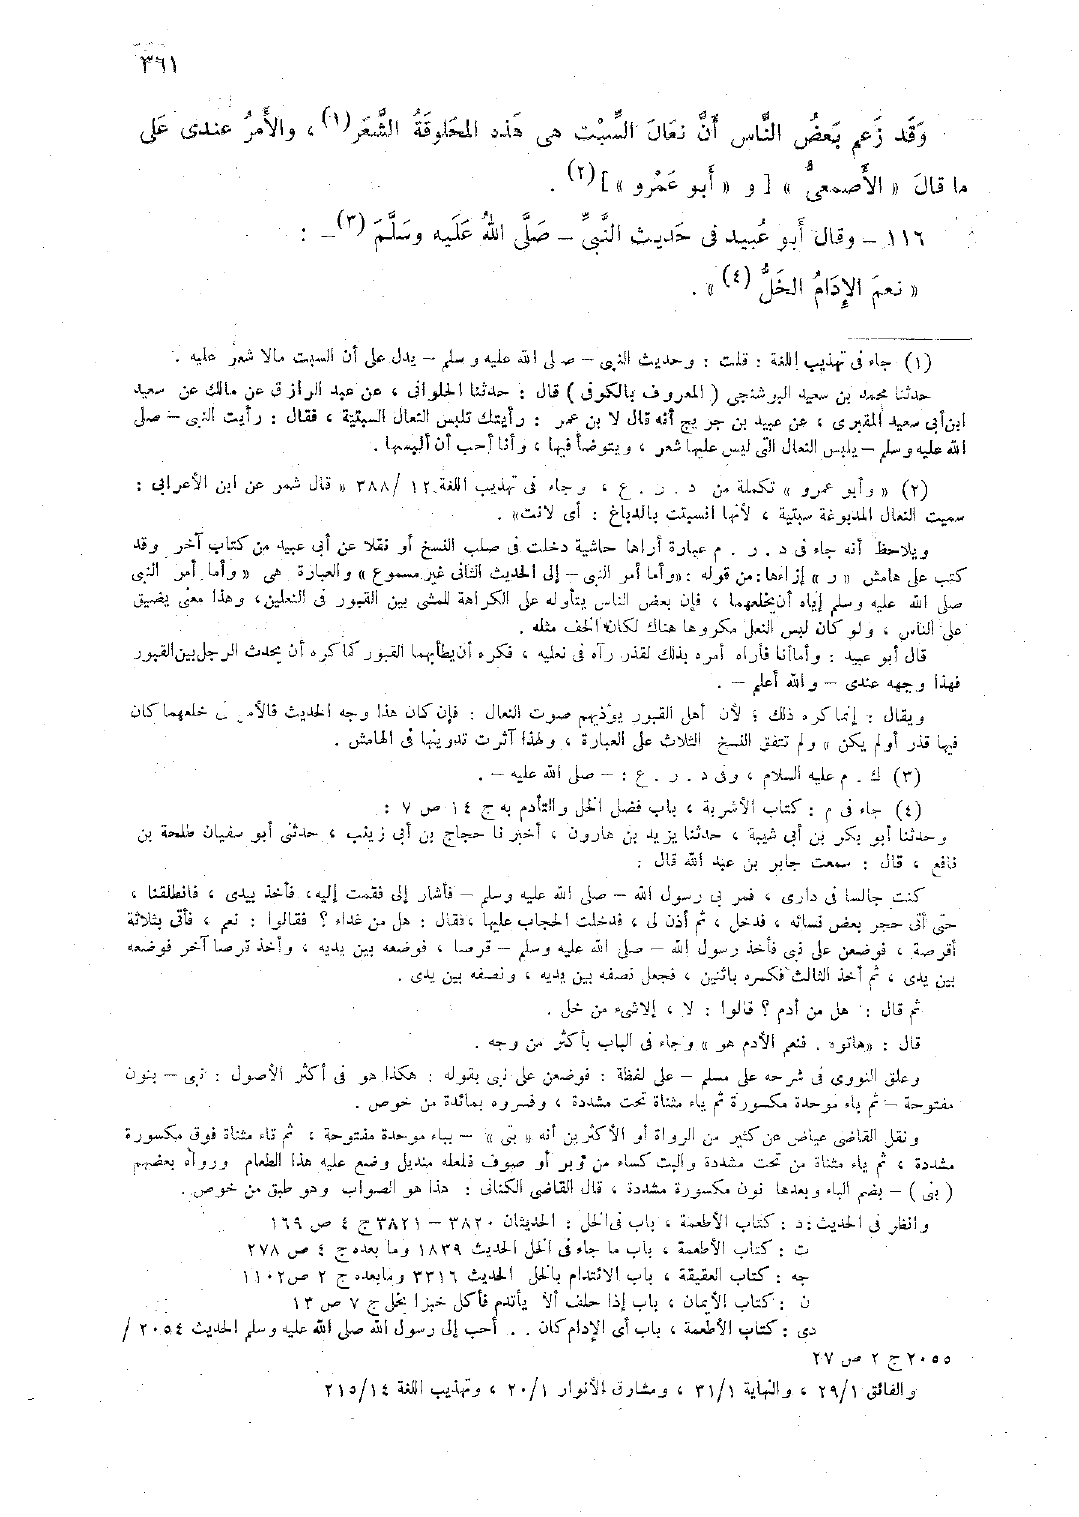 ٣٦١
وَقَد زَعَم بَعضُ النَّاس أَنَّ نعَالَ السِّبْت هى هَذه المَحلوقَةُ الشَّعَر (١) ، والأَمرُ عندى عَلى
ما قالَ « الأَصمعىُّ » [ و « أَبو عَمْرو » ] (٢) .
١١٦ – وقال أَبو عُبيد فى حَديث النَّبىِّ – صَلَّى اللهُ عَلَيه وسَلَّمَ (٣) – :
« نعمَ الإِدَامُ الخَلُّ (٤) » .
(١) جاء فى تهذيب اللغة : قلت : وحديث النبى – صلى الله عليه وسلم – يدل على أن السبت مالا شعر عليه .
حدثنا محمد بن سعيد البوشنجى ( المعروف بالكوفى ) قال : حدثنا الحلوانى ، عن عبد الرازق عن مالك عن سعيد
ابن أبى سعيد المقبرى ، عن عبيد بن جريج أنه قال لا بن عمر : رأيتك تلبس النعال السبتية ، فقال : رأيت النبى – صلى
الله عليه وسلم – يلبس النعال التى ليس عليها شعر ، ويتوضأ فيها ، وأنا أحب أن ألبسها .
(٢) « وأبو عمرو » تكملة من د . ر . ع ، وجاء فى تهذيب اللغة ١٢ /٣٨٨ « قال شمر عن ابن الأعرابى :
سميت النعال المدبوغة سبتية ، لأنها انسبتت بالدباغ : أى لانت» .
ويلاحظ أنه جاء فى د . ر . م عبارة أراها حاشية دخلت فى صلب النسخ أو نقلا عن أبى عبيد من كتاب آخر وقد
كتب على هامش « ر » إزاءها : من قوله : «وأما أمر النبى – إلى الحديث الثانى غير مسموع » والعبارة هى « وأما أمر النبى
صلى الله عليه وسلم إياه أن يخلعهما ، فإن بعض الناس يتأوله على الكراهة للمشى بين القبور فى النعلين ، وهذا معنى يضيق
على الناس ، ولو كان ليس النعل مكروها هناك لكان الخف مثله .
قال أبو عبيد : وأما أنا فأراه أمره بذلك لقذر رآه فى نعليه ، فكره أن يطأ بهما القبور كما كره أن يحدث الرجل بين القبور
فهذا وجهه عندى – والله أعلم – .
ويقال : إنما كره ذلك ؛ لأن أهل القبور يؤذيهم صوت النعال : فإن كان هذا وجه الحديث فالأمر فى خلعهما كان
فيها قذر أو لم يكن » ولم تتفق النسخ الثلاث على العبارة ، ولهذا آثرت تدوينها فى الهامش .
(٣) ك . م عليه السلام ، وفى د . ر . ع : – صلى الله عليه – .
(٤) جاء فى م : كتاب الأشربة ، باب فضل الخل والتأدم به ج ١٤ ص ٧ :
وحدثنا أبو بكر بن أبى شيبة ، حدثنا يزيد بن هارون ، أخبرنا حجاج بن أبى زينب ، حدثنى أبو سفيان طلحة بن
نافع ، قال : سمعت جابر بن عبد الله قال :
كنت جالسا فى دارى ، فمر بى رسول الله – صلى الله عليه وسلم – فأشار إلى فقمت إليه ، فأخذ بيدى ، فانطلقنا ،
حتى أتى حجر بعض نسائه ، فدخل ، ثم أذن لى ، فدخلت الحجاب عليها ، فقال : هل من غداء ؟ فقالوا : نعم ، فأتى بثلاثة
أقرصة ، فوضعن على نبى فأخذ رسول الله – صلى الله عليه وسلم – قرصا ، فوضعه بين يديه ، وأخذ قرصا آخر فوضعه
بين يدى ، ثم أخذ الثالث فكسره باثنين ، فجعل نصفه بين يديه ، ونصفه بين يدى .
ثم قال : هل من أدم ؟ قالوا : لا ، إلا شىء من خل .
قال : «هاتوه . فنعم الأدم هو » وجاء فى الباب بأكثر من وجه .
وعلق النووى فى شرحه على مسلم – على لفظة : فوضعن على نبى بقوله : هكذا هو فى أكثر الأصول : نبى – بنون
مفتوحة – ثم باء موحدة مكسورة ثم ياء مثناة تحت مشددة ، وفسروه بمائدة من خوص .
ونقل القاضى عياض عن كثير من الرواة أو الأكثرين أنه « بتى » – بباء موحدة مفتوحة ، ثم تاء مثناة فوق مكسورة
مشددة ، ثم ياء مثناة من تحت مشددة والبت كساء من وبر أو صوف فلعله منديل وضع عليه هذا الطعام ورواه بعضهم
( بنى ) – بضم الباء وبعدها نون مكسورة مشددة ، قال القاضى الكنانى : هذا هو الصواب وهو طبق من خوص .
وانظر فى الحديث : د : كتاب الأطعمة ، باب فى الخل : الحديثان ٣٨٢٠ – ٣٨٢١ ج ٤ ص ١٦٩
ت : كتاب الأطعمة ، باب ما جاء فى الخل الحديث ١٨٣٩ وما بعده ج ٤ ص ٢٧٨
جه : كتاب العقيقة ، باب الائتدام بالخل الحديث ٣٣١٦ وما بعده ج ٢ ص ١١٠٢
ن : كتاب الأيمان ، باب إذا حلف ألا يأتدم فأكل خبزا بخل ج ٧ ص ١٣
دى : كتاب الأطعمة ، باب أى الإدام كان . . أحب إلى رسول الله صلى الله عليه وسلم الحديث ٢٠٥٤ /
٢٠٥٥ ج ٢ ص ٢٧
والفائق ٢٩/١ ، والنهاية ٣١/١ ، ومشارق الأنوار ٢٠/١ ، وتهذيب اللغة ٢١٥/١٤